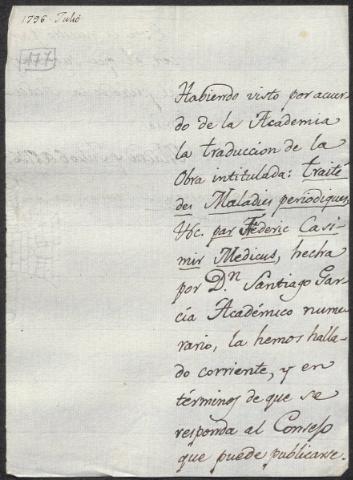 1796 Julio
Habiendo visto por acuer
do de la Academia
la traduccion de la
Obra intitulada: traité
des Maladies periodiques,
&c. par Féderic Casi
mir Medicus, hecha
por D.n Santiago Gar
cía Académico nume
rario, la hemos halla
do corriente, y en
términos de que se
responda al Consejo
que puede publicarse.